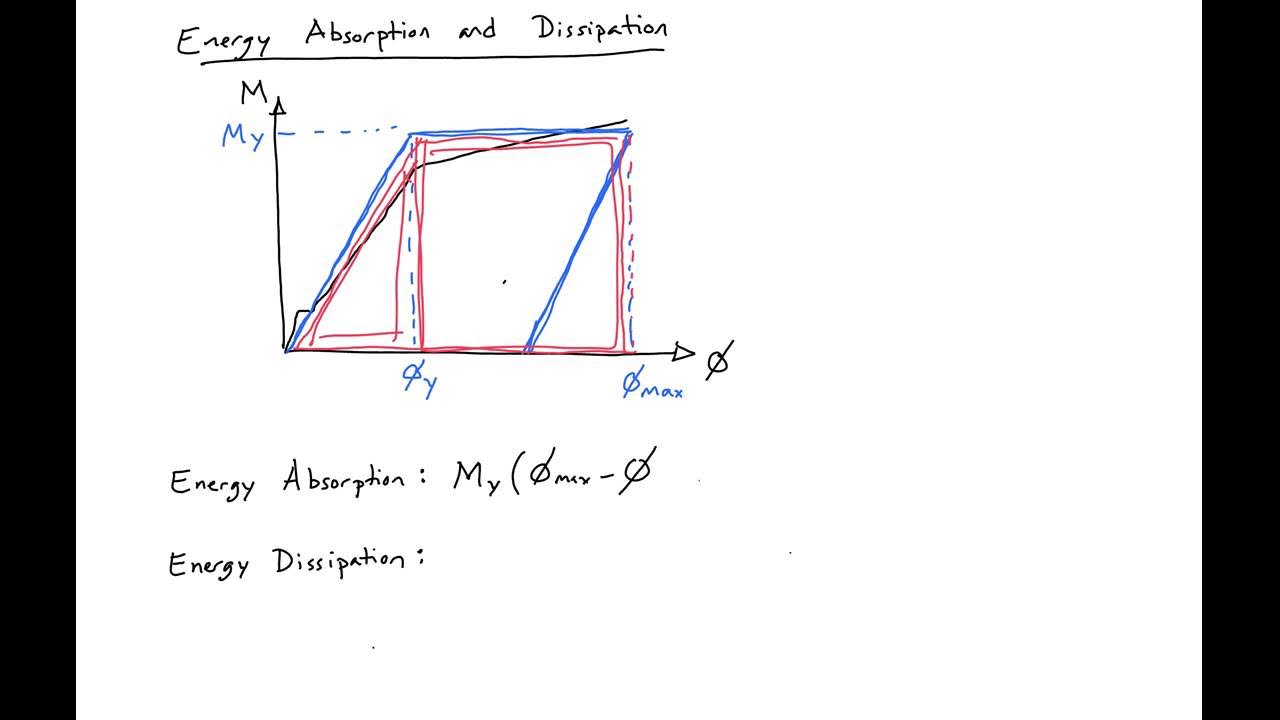 Energy Absorption and Dissipation
M
My
ϕ
ϕy
ϕmax
Energy Absorption: My(ϕmax - ϕ
Energy Dissipation: